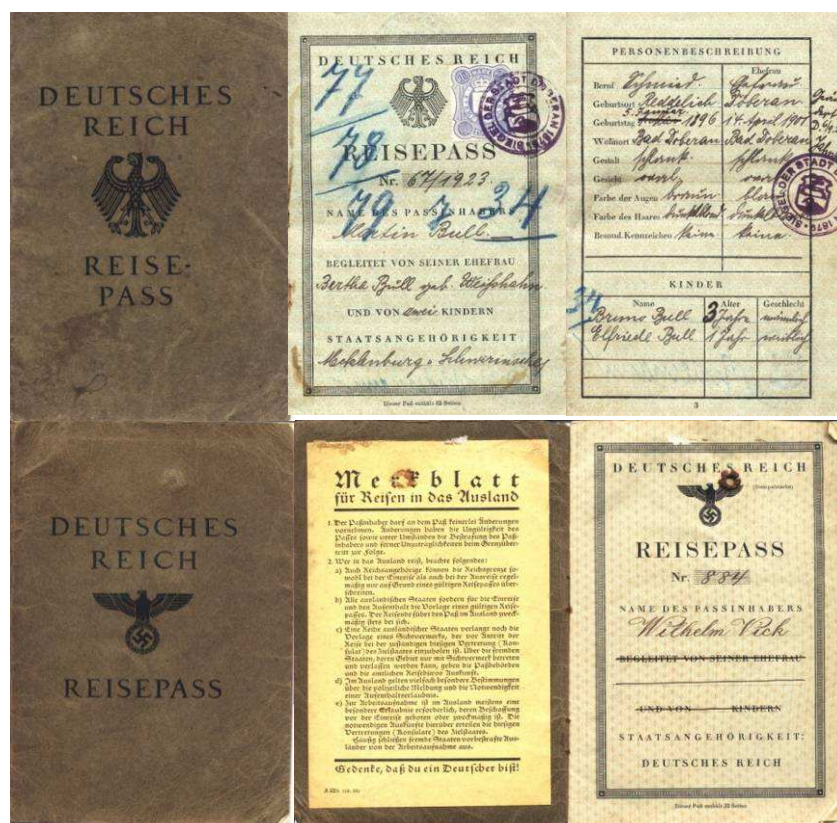 DEUTSCHES
REICH
REISE-
PASS
DEUTSCHES REICH
REISEPASS
Nr. 67/1923.
77
78
79 34
NAME DES PASSINHABERS
Martin Bull
BEGLEITET VON SEINER EHEFRAU
Bertha Bull geb. Weißhahn
UND VON zwei KINDERN
STAATSANGEHÖRIGKEIT
Mecklenburg-Schwerinsche
Dieser Paß enthält 32 Seiten
PERSONENBESCHREIBUNG
Ehefrau
Beruf Schmied.
Geburtsort Reddelich Doberan
Geburtstag 5. 1896 14. April 1901
Wohnort Bad Doberan Bad Doberan
Gestalt schlank. schlank
Gesicht oval oval
Farbe der Augen braun
Farbe des Haares
Besond. Kennzeichen keine keine
SIEGEL DER STADT DOBERAN 1879
KINDER
Name Alter Geschlecht
34
Bruno Bull 3 Jahre männlich
Elfriede Bull 1 Jahr weiblich
3
DEUTSCHES
REICH
REISEPASS
Merkblatt
für Reisen in das Ausland
1. Der Paßinhaber darf an dem Paß keinerlei Änderungen
vornehmen. Änderungen haben die Ungültigkeit des
Passes sowie unter Umständen die Bestrafung des Paß-
inhabers und ferner Unzuträglichkeiten beim Grenzüber-
tritt zur Folge.
2. Wer in das Ausland reist, beachte folgendes:
a) Auch Reichsangehörige können die Reichsgrenze so-
wohl bei der Einreise als auch bei der Ausreise regel-
mäßig nur auf Grund eines gültigen Reisepasses über-
schreiten.
b) Alle ausländischen Staaten fordern für die Einreise
und den Aufenthalt die Vorlage eines gültigen Reise-
passes. Der Reisende führt den Paß im Ausland zweck-
mäßig stets bei sich.
c) Eine Reihe ausländischer Staaten verlangt noch die
Vorlage eines Sichtvermerks, der vor Antritt der
Reise bei der zuständigen hiesigen Vertretung (Kon-
sulat) des Zielstaates einzuholen ist. Über die fremden
Staaten, deren Gebiet nur mit Sichtvermerk betreten
und verlassen werden kann, geben die Paßbehörden
und die amtlichen Reisebüros Auskunft.
d) Im Ausland gelten vielfach besondere Bestimmungen
über die polizeiliche Meldung und die Notwendigkeit
einer Aufenthaltserlaubnis.
e) Zur Arbeitsaufnahme ist im Ausland meistens eine
besondere Erlaubnis erforderlich, deren Beschaffung
vor der Einreise geboten oder zweckmäßig ist. Die
notwendigen Auskünfte hierüber erteilen die hiesigen
Vertretungen (Konsulate) des Zielstaates.
Häufig schließen fremde Staaten vorbestrafte Aus-
länder von der Arbeitsaufnahme aus.
Gedenke, daß du ein Deutscher bist!
DEUTSCHES REICH
REISEPASS
Nr. 884
NAME DES PASSINHABERS
Wilhelm Vick
BEGLEITET VON SEINER EHEFRAU
UND VON KINDERN
STAATSANGEHÖRIGKEIT:
DEUTSCHES REICH
Dieser Paß enthält 32 Seiten